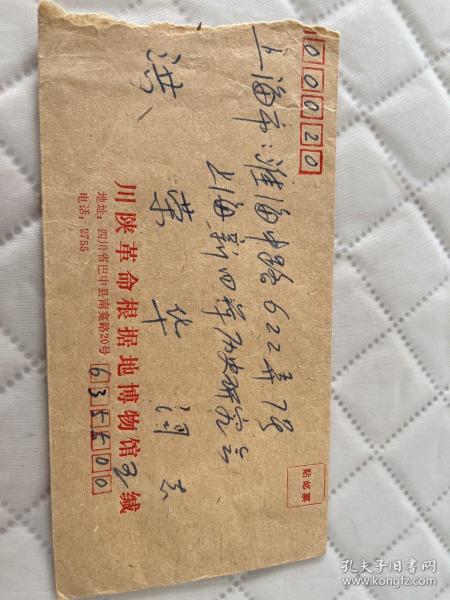 00020
上海市:淮海中路622弄7号
上海新四军历史研究会
洪荣华 同志
川陕革命根据地博物馆 缄
地址:四川省巴中县南龛路20号
电话:2755
635500
贴邮票
孔夫子旧书网
www.kongfz.com